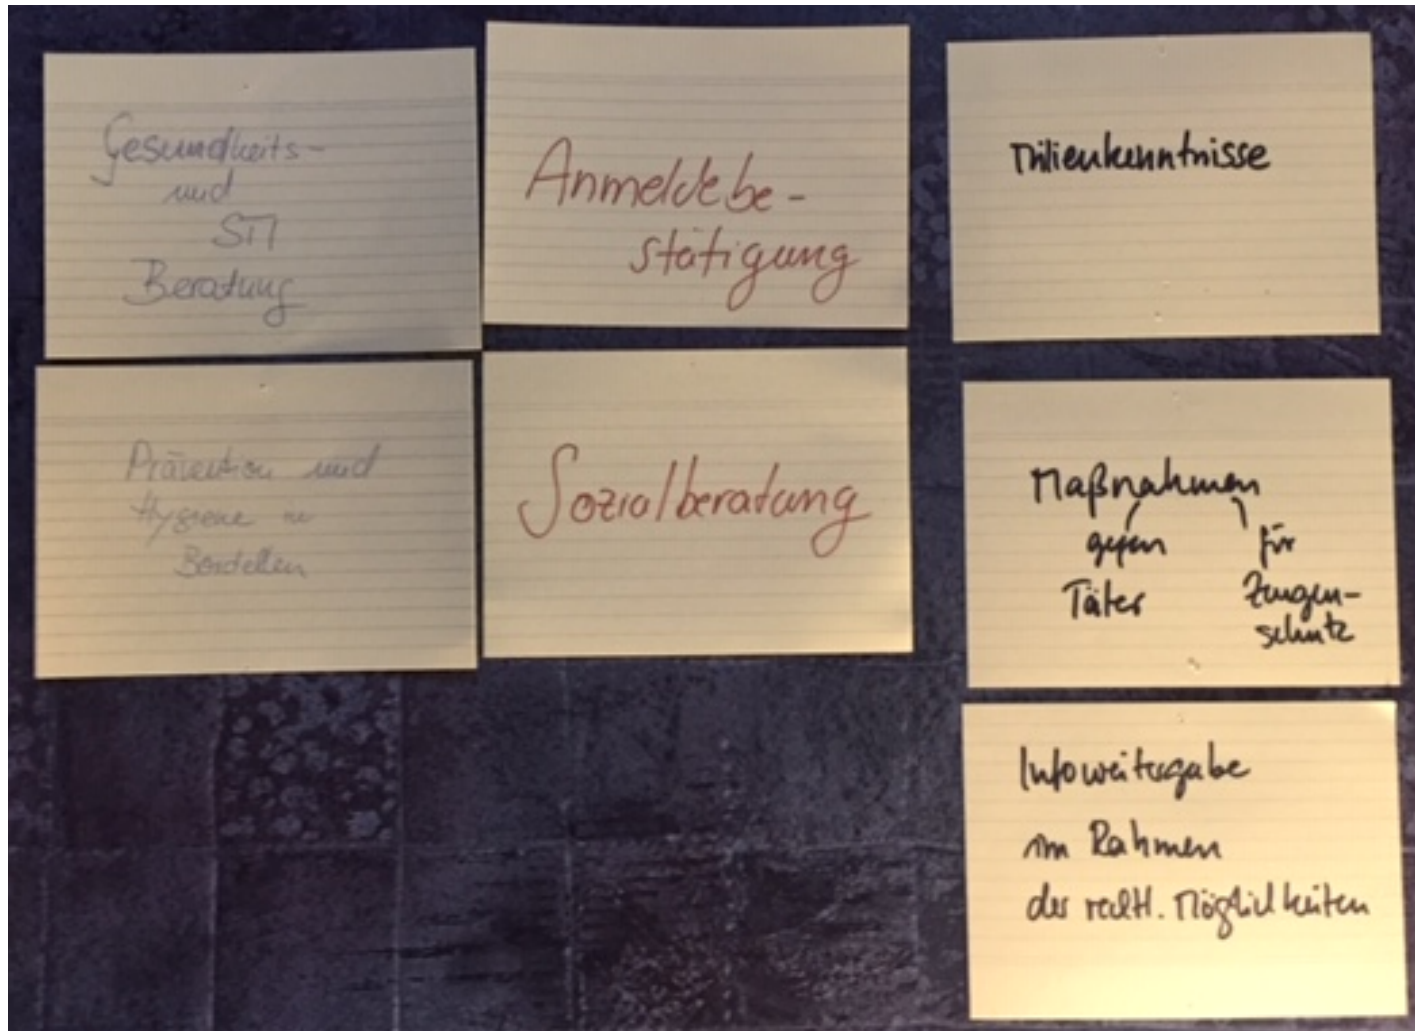 Gesundheits-
und
STI
Beratung
Prävention und
Hygiene in
Bordellen
Anmeldebe-
stätigung
Sozialberatung
Milieukenntnisse
Maßnahmen
gegen
Täter
für
Zeugen-
schutz
Infoweitergabe
im Rahmen
der rechtl. Möglichkeiten